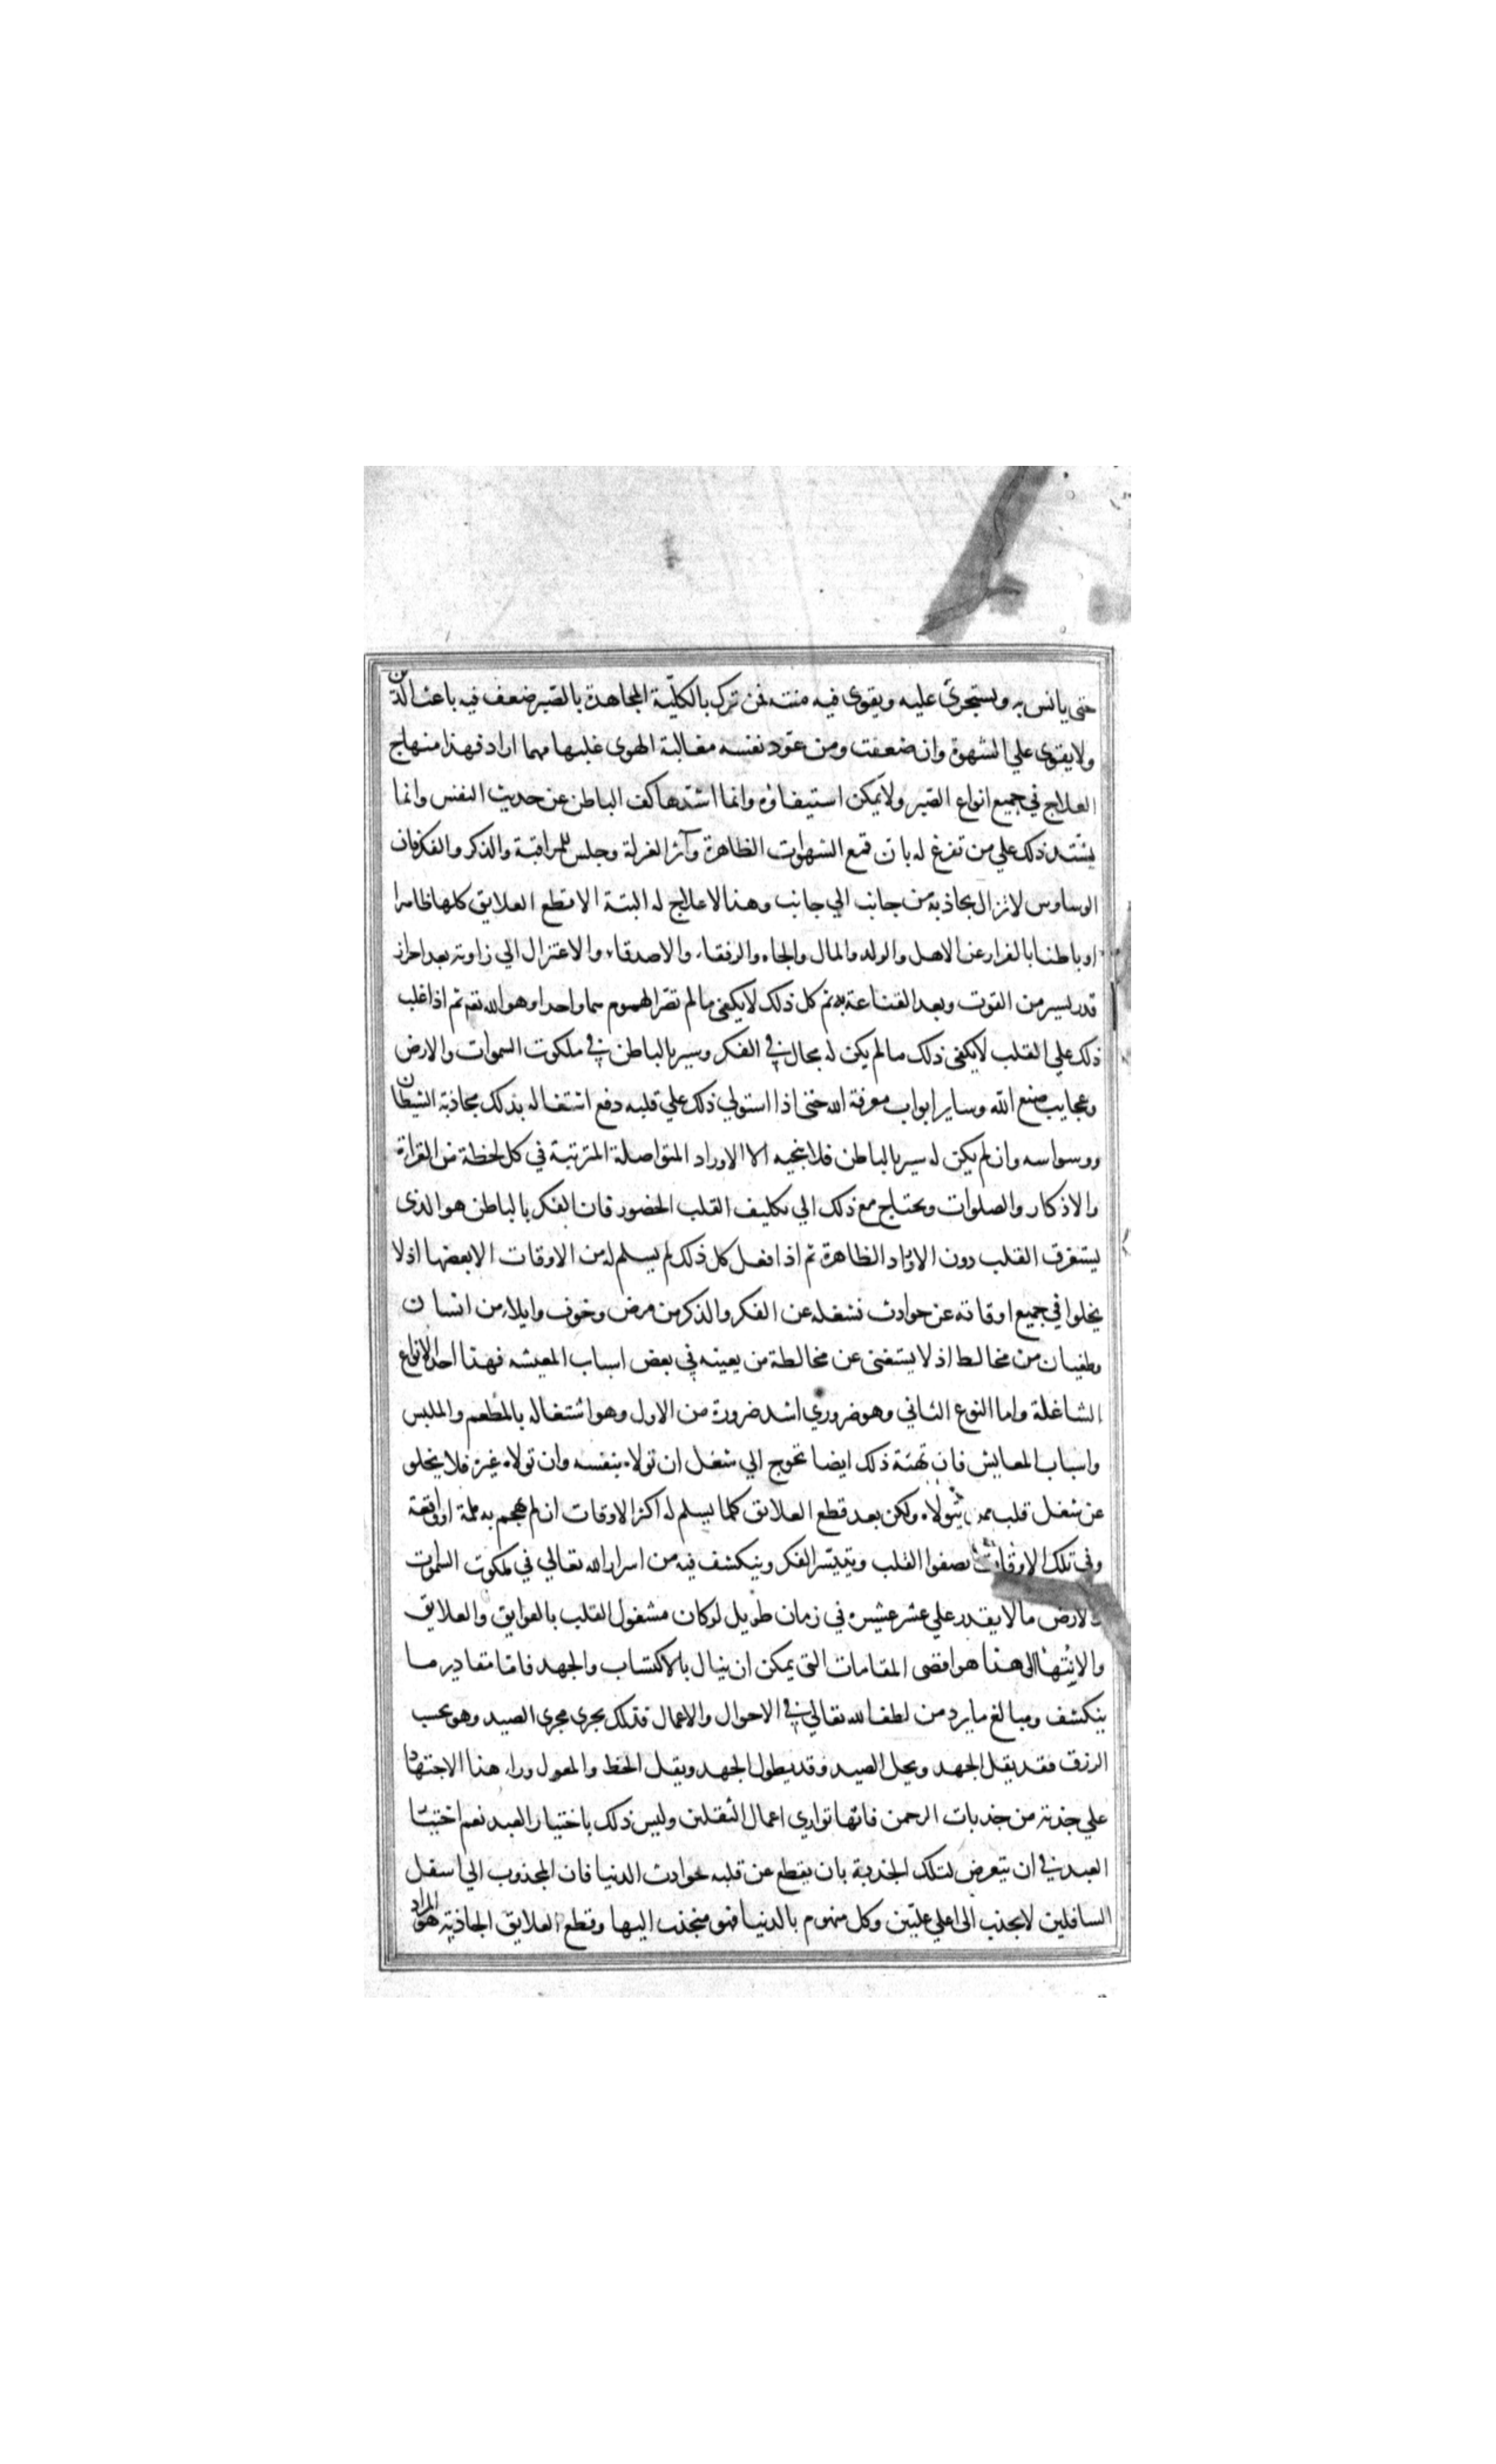 حتى يانس به ويستجرئ عليه ويقوى فيه منته فمن ترك بالكلية المجاهدة بالصبر ضعف فيه باعث الدين
ولا يقوى علي الشهوة وان ضعفت ومن عود نفسه مغالبة الهوى غلبها مهما اراد فهذا منهاج
العلاج في جميع انواع الصبر ولا يمكن استيفاؤه وانما اشدها كف الباطن عن حديث النفس وانما
يشتد ذلك علي من تفرغ له بان قمع الشهوات الظاهرة وآثر العزلة وجلس للمراقبة والذكر والفكر فان
الوساوس لا تزال تجاذبه من جانب الي جانب وهذا لا علاج له البتة الا قطع العلايق كلها ظاهرا
او باطنا بالفرار عن الاهل والولد والمال والجاه والرفقاء والاصدقاء والاعتزال الي زاوية بعد احراز
قدر يسير من القوت وبعد القناعة به ثم كل ذلك لا يكفي ما لم تصر الهموم هما واحدا وهو الله تعم ثم اذا غلب
ذلك علي القلب لا يكفي ذلك ما لم يكن له مجال في الفكر وسير بالباطن في ملكوت السموات والارض
وعجايب صنع الله وساير ابواب معرفة الله حتى اذا استولي ذلك علي قلبه دفع اشتغاله بذلك مجاذبة الشيطان
ووسواسه وان لم يكن له سير بالباطن فلا ينجيه الا الاوراد المتواصلة المترتبة في كل لحظة من القراءة
والاذكار والصلوات ويحتاج مع ذلك الي تكليف القلب الحضور فان الفكر بالباطن هو الذي
يستغرق القلب دون الاوراد الظاهرة ثم اذا فعل كل ذلك لم يسلم له من الاوقات الا بعضها اذ لا
يخلوا في جميع اوقاته عن حوادث تشغله عن الفكر والذكر من مرض وخوف وايلاء من انسان
وطغيان من مخالط اذ لا يستغنى عن مخالطة من يعينه في بعض اسباب المعيشه فهذا احد الانواع
الشاغلة واما النوع الثاني وهو ضروري اشد ضرورة من الاول وهو اشتغاله بالمطعم والملبس
واسباب المعايش فان تهئة ذلك ايضا تحوج الي شغل ان تولاه بنفسه وان تولاه غيره فلا يخلو
عن شغل قلب بمن يتولاه ولكن بعد قطع العلايق كلها يسلم له اكثر الاوقات ان لم تهجم به ملمة او واقعة
وفي تلك الاوقات يصفوا القلب ويتيسر الفكر وينكشف فيه من اسرار الله تعالي في ملكوت السموات
والارض ما لا يقدر علي عشر عشيره في زمان طويل لو كان مشغول القلب بالعوايق والعلايق
والانتهاء الى هذا هو اقصى المقامات التي يمكن ان ينال بالاكتساب والجهد فاما مقادير ما
ينكشف ومبالغ ما يرد من لطف الله تعالي في الاحوال والاعمال فذلك يجرى مجرى الصيد وهو بحسب
الرزق فقد يقل الجهد ويجل الصيد وقد يطول الجهد ويقل الحظ والمعول وراء هذا الاجتهاد
علي جذبة من جذبات الرحمن فانها توازي اعمال الثقلين وليس ذلك باختيار العبد نعم اختيار
العبد في ان يتعرض لتلك الجذبة بان يقطع عن قلبه حوادث الدنيا فان المجذوب الي اسفل
السافلين لا يجذب الى اعلي عليين وكل منهوم بالدنيا فهو منجذب اليها وقطع العلايق الجاذبة هو المراد